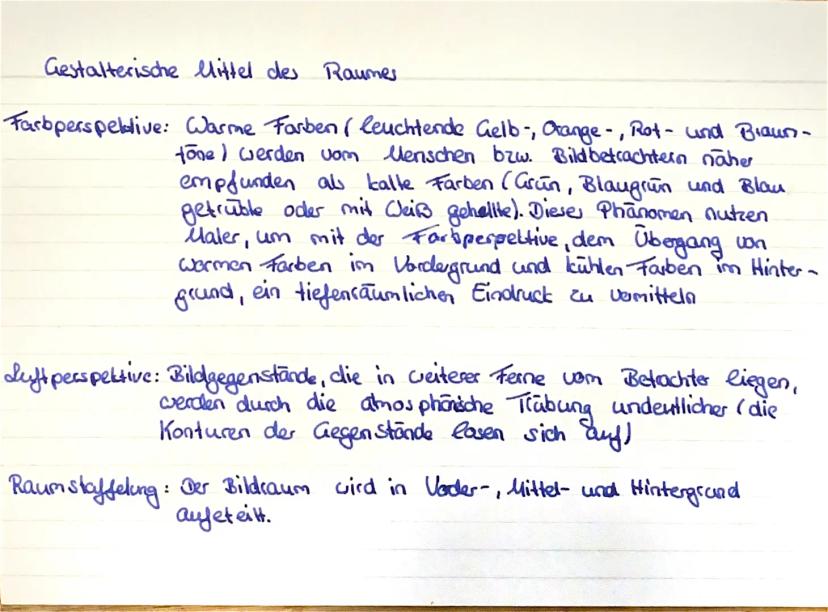 Gestalterische Mittel des Raumes
Farbperspektive: Warme Farben (leuchtende Gelb-, Orange-, Rot- und Braun-
töne) werden vom Menschen bzw. Bildbetrachtern näher
empfunden als kalte Farben (Grün, Blaugrün und Blau
getrübte oder mit Weiß gehellte). Dieses Phänomen nutzen
Maler, um mit der Farbperpektive, dem Übergang von
warmen Farben im Vordergrund und kühlen Farben im Hinter-
grund, ein tiefenräumlichen Eindruck zu vermitteln
Luftperspektive: Bildgegenstände, die in weiterer Ferne vom Betrachter liegen,
werden durch die atmosphärische Trübung undeutlicher (die
Konturen der Gegenstände lösen sich auf)
Raumstaffelung: Der Bildraum wird in Voder-, Mittel- und Hintergrund
aufeteilt.